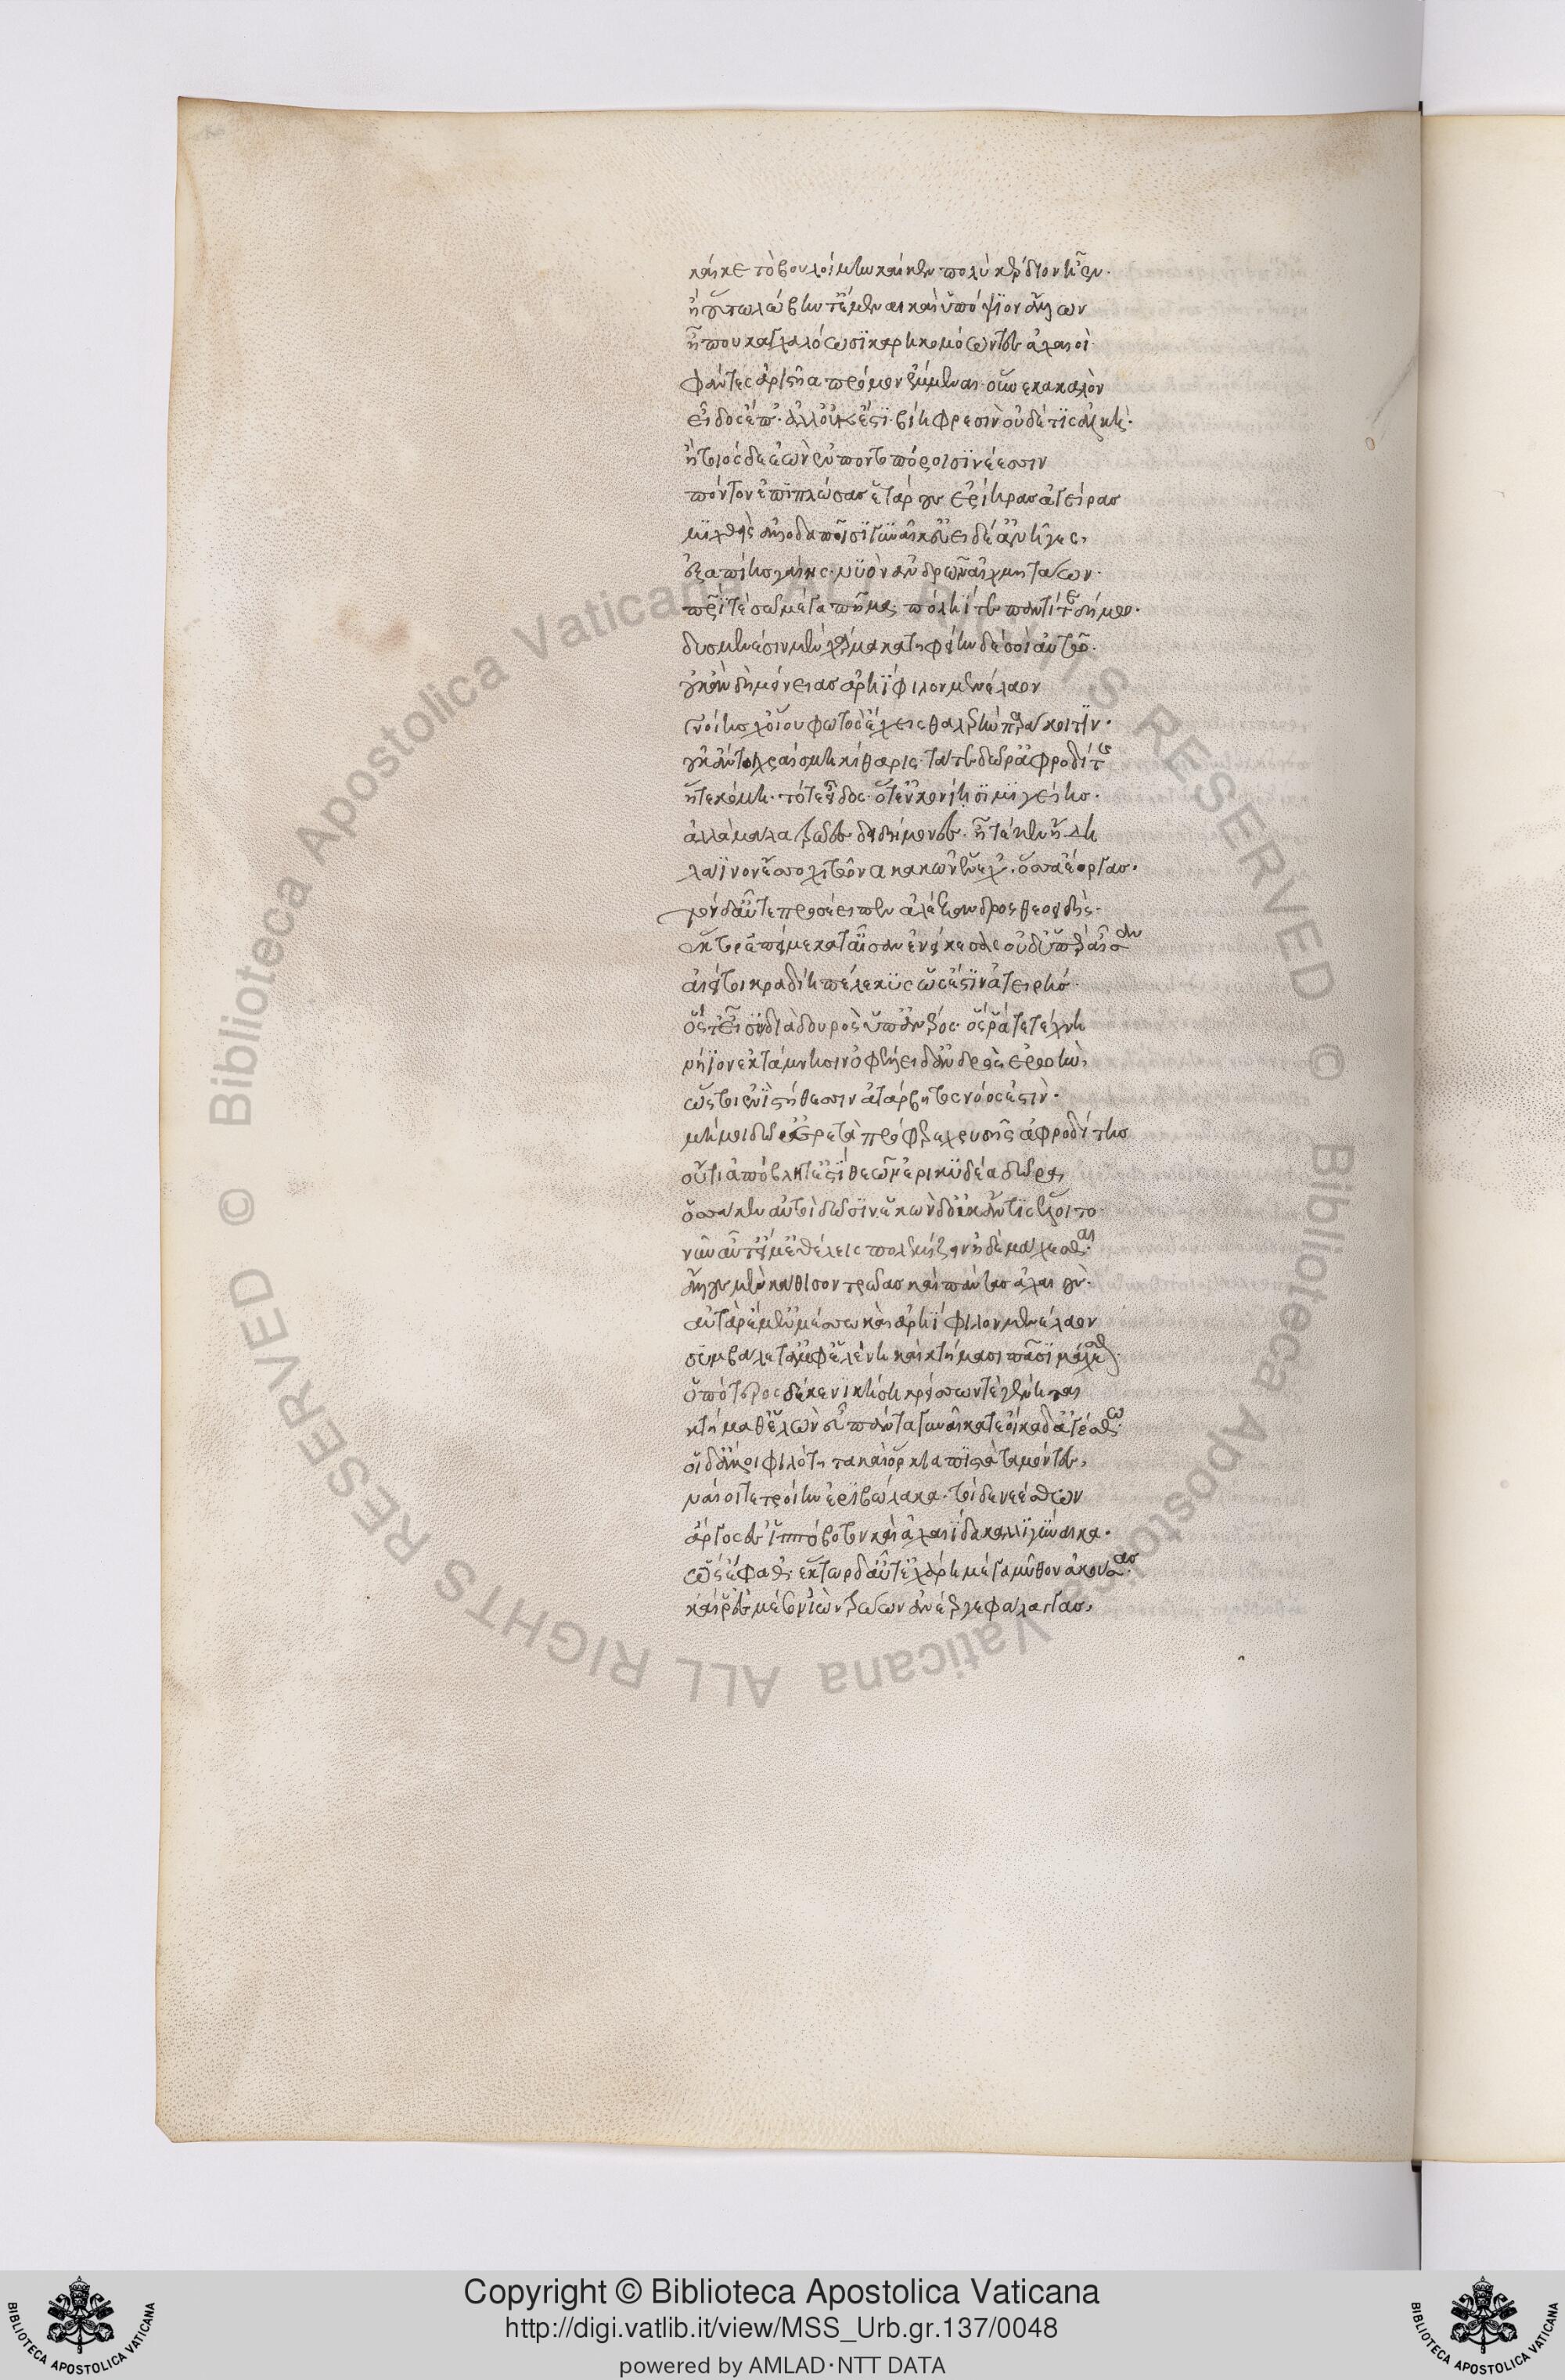 καί κε τὸ βουλοίμην καί κεν πολὺ κέρδιον ἦεν.
ἢ οὕτω λώβην τ' ἔμεναι καὶ ὑπόψιον ἄλλων
ἦ που καγχαλόωσι καρηκομόωντες ἀχαιοὶ
φάντες ἀριστῆα πρόμον ἔμμεναι· οὕνεκα καλὸν
εἶδος ἔπ'. ἀλλ' οὐκ ἔστι βίη φρεσὶν οὐδέ τις ἀλκή.
ἢ τοιόσδε ἐὼν ἐν ποντοπόροισι νέεσσιν
πόντον ἐπιπλώσας ἑτάρους ἐρίηρας ἀγείρας
μιχθεὶς ἀλλοδαποῖσι γυναῖκ' εὐειδέ' ἀνῆγες,
ἐξ ἀπίης γαίης· νυὸν ἀνδρῶν αἰχμητάων.
πατρί τε σῷ μέγα πῆμα πόληί τε παντί τε δήμῳ.
δυσμενέσιν μὲν χάρμα κατηφείην δέ σοι αὐτῷ.
οὐκ ἂν δὴ μείνειας ἀρηΐφιλον μενέλαον
γνοίης χ' οἵου φωτὸς ἔχεις θαλερὴν παράκοιτιν.
οὐκ ἄν τοι χραίσμῃ κίθαρις τά τε δῶρ' ἀφροδίτης
ἥ τε κόμη· τό τε εἶδος· ὅτ' ἐν κονίῃσι μιγείης.
ἀλλὰ μάλα τρῶες δειδήμονες. ἦ τέ κεν ἤδη
λάϊνον ἕσσο χιτῶνα κακῶν ἕνεχ'. ὅσσα ἔοργας.
τὸν δ' αὖτε προσέειπεν ἀλέξανδρος θεοειδής.
ἕκτορ ἐπεί με κατ' αἶσαν ἐνείκεσας οὐδ' ὑπὲρ αἶσαν
αἰεί τοι κραδίη πέλεκυς ὥς ἐστιν ἀτειρής
ὅς τ' εἶσιν διὰ δουρὸς ὑπ' ἀνέρος· ὅς ῥά τε τέχνῃ
νήϊον ἐκτάμνῃσιν ὀφέλλει δ' ἀνδρὸς ἐρωήν,
ὥς τοι ἐνὶ στήθεσσιν ἀτάρβητος νόος ἐστίν.
μή μοι δῶρ' ἐρατὰ πρόφερε χρυσῆς ἀφροδίτης
οὔτι ἀπόβλητ' ἐστὶ θεῶν ἐρικυδέα δῶρα,
ὅσσα κεν αὐτοὶ δῶσιν. ἑκὼν δ' οὐκ ἄν τις ἕλοιτο.
νῦν αὖτ' εἴ μ' ἐθέλεις πολεμίζειν ἠδὲ μάχεσθαι.
ἄλλους μὲν κάθισον τρῶας καὶ πάντας ἀχαιούς.
αὐτὰρ ἔμ' ἐν μέσσῳ καὶ ἀρηΐφιλον μενέλαον
συμβάλετ' ἀμφ' ἑλένῃ καὶ κτήμασι πᾶσι μάχεσθαι.
ὁππότερος δέ κε νικήσῃ κρείσσων τε γένηται
κτήμαθ' ἑλὼν εὖ πάντα γυναῖκά τε οἴκαδ' ἀγέσθω.
οἱ δ' ἄλλοι φιλότητα καὶ ὅρκια πιστὰ ταμόντες,
ναίοιτε τροίην ἐριβώλακα. τοὶ δὲ νεέσθων
ἄργος ἐς ἱππόβοτον καὶ ἀχαιΐδα καλλιγύναικα.
ὣς ἔφαθ'. ἕκτωρ δ' αὖτ' ἐχάρη μέγα μῦθον ἀκούσας.
καί ῥ' ἐς μέσσον ἰὼν τρώων ἀνέεργε φάλαγγας,
Copyright © Biblioteca Apostolica Vaticana
http://digi.vatlib.it/view/MSS_Urb.gr.137/0048
powered by AMLAD·NTT DATA